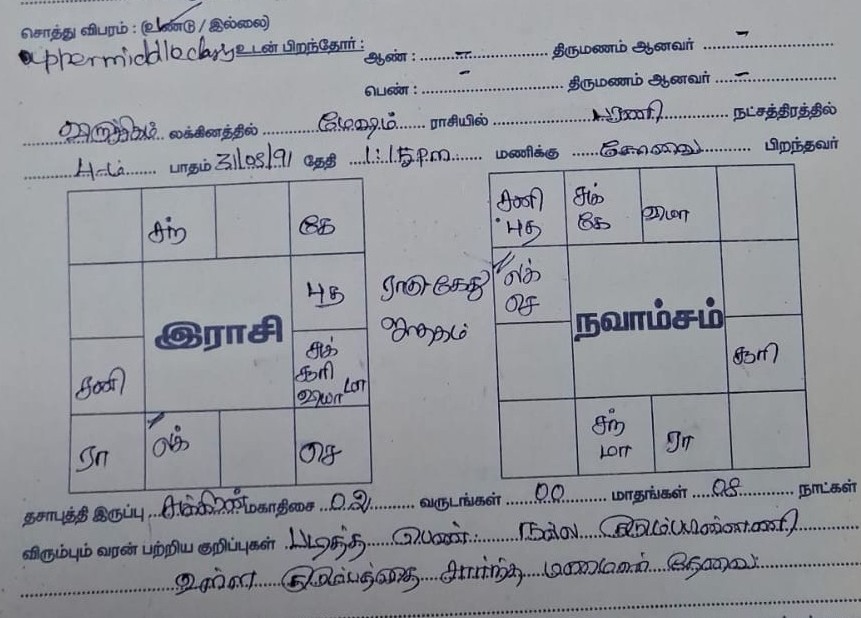 சொத்து விபரம் : (உண்டு / இல்லை)
uppermiddleclass உடன் பிறந்தோர் : ஆண் : – திருமணம் ஆனவர் –
பெண் : – திருமணம் ஆனவர் –
லக்கினத்தில் மேஷம் ராசியில் பரணி நட்சத்திரத்தில்
4-ம் பாதம் 31/08/91 தேதி 1.15pm மணிக்கு கோவை பிறந்தவர்
சந்
கே
சனி
புத
சுக்
கே
மா
புத
லக்
செ
ராகு-கேது
ஜாதகம்
இராசி
நவாம்சம்
சனி
சுக்
சூரி
மா
சூரி
ரா
லக்
செ
சந்
மா
ரா
தசாபுத்தி இருப்பு சுக்கிரன் மகாதிசை 02 வருடங்கள் 00 மாதங்கள் 08 நாட்கள்
விரும்பும் வரன் பற்றிய குறிப்புகள் படித்த பெண். நல்ல குடும்ப பின்னணி
உள்ள குடும்பத்தை சார்ந்த மணமகள் தேவை